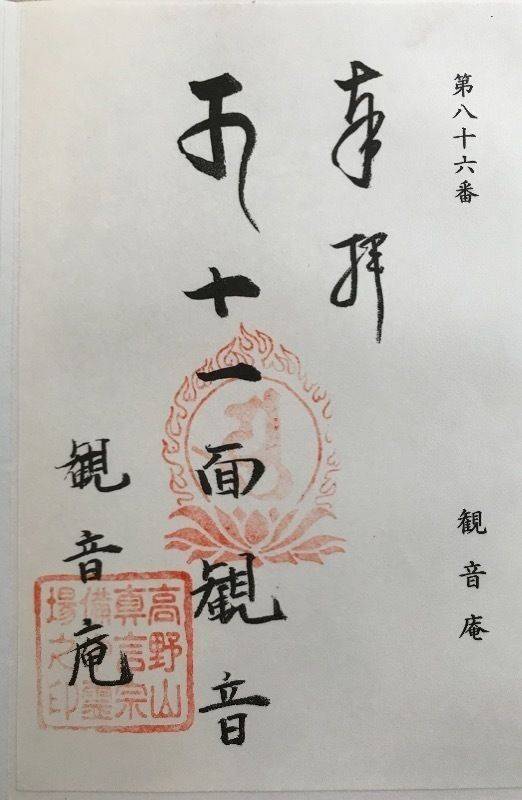 第八十六番
観音庵
奉拝
十一面観音
観音庵
高野山
真言宗
備霊
場之印